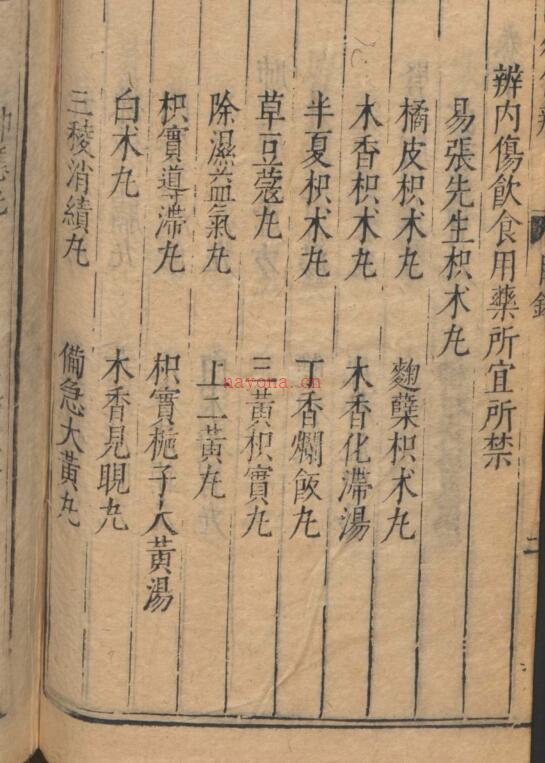 辨内傷飲食用藥所宜所禁
易張先生枳术丸
橘皮枳术丸
麴蘖枳术丸
木香枳术丸
木香化滯湯
半夏枳术丸
丁香爛飯丸
草豆蔻丸
三黃枳實丸
除濕益氣丸
上二黃丸
枳實導滯丸
枳實梔子大黃湯
白术丸
木香見晛丸
三稜消績丸
備急大黃丸
二
nayona.cn